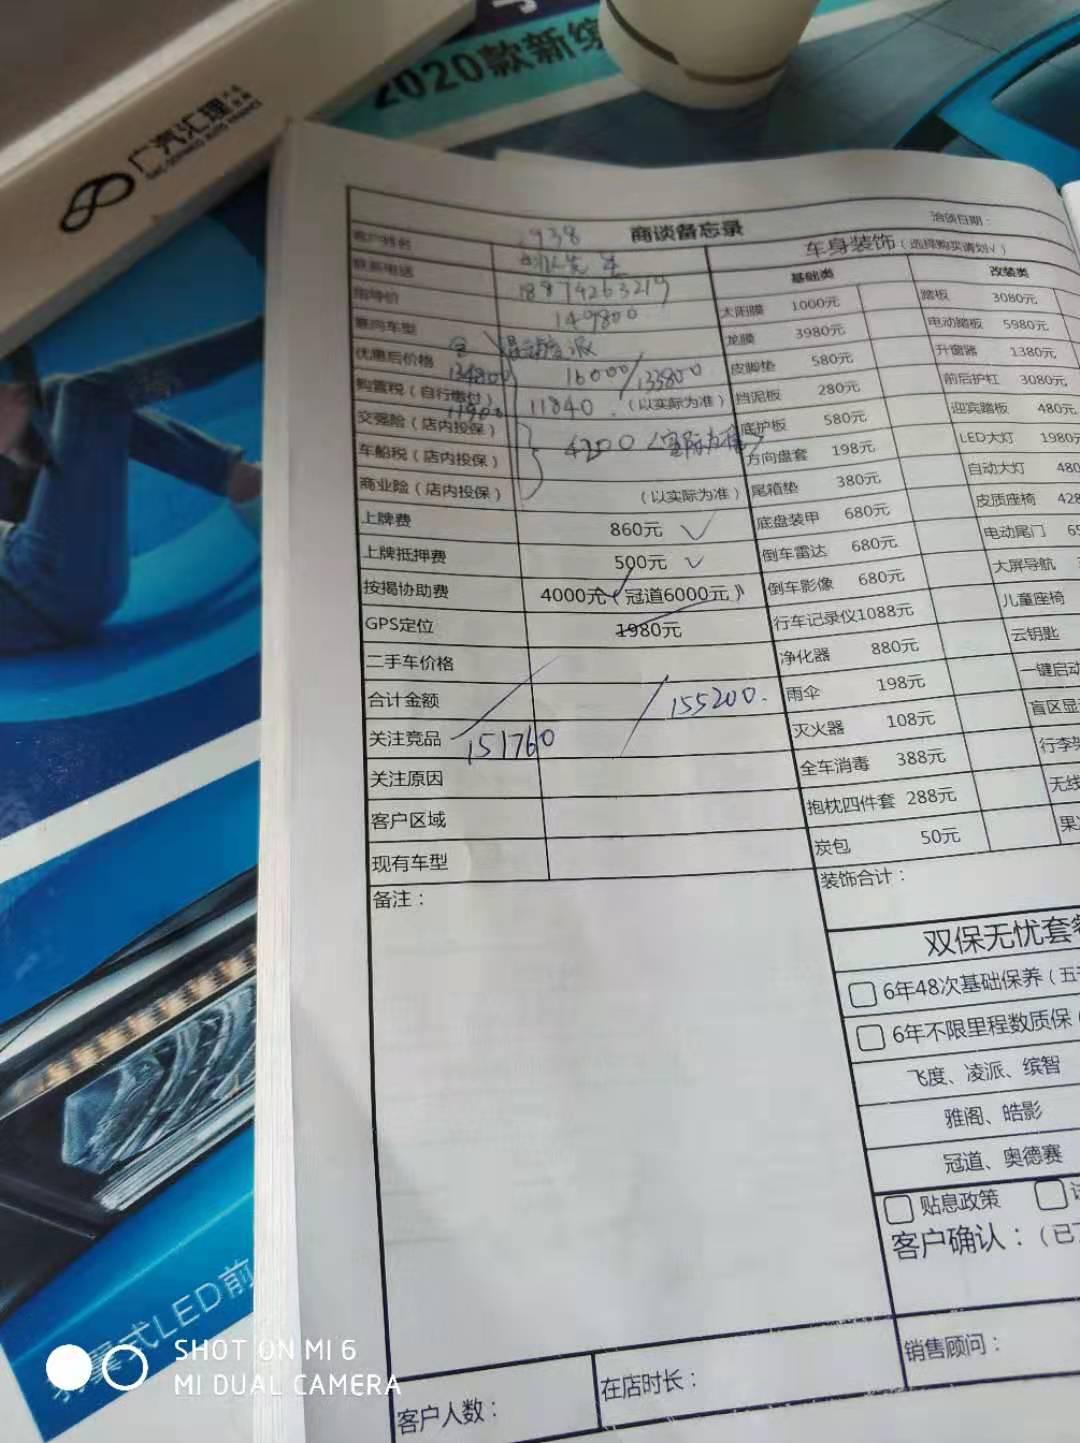 2020款新缤
广汽汇理
商谈备忘录
洽谈日期：
客户姓名 1938
联系电话 18874263219
指导价 149800
意向车型 混动凌派
优惠后价格 134800 16000/133800
购置税（自行缴付） 11900 11840 （以实际为准）
交强险（店内投保） 4200
车船税（店内投保）
商业险（店内投保） （以实际为准）
上牌费 860元
上牌抵押费 500元
按揭协助费 4000元（冠道6000元）
GPS定位 1980元
二手车价格
合计金额 155200.
关注竞品 151760
关注原因
客户区域
现有车型
备注：
车身装饰（选择购买请划√）
基础类 改装类
太阳膜 1000元 踏板 3080元
龙膜 3980元 电动踏板 5980元
皮脚垫 580元 升窗器 1380元
挡泥板 280元 前后护杠 3080元
底护板 580元 迎宾踏板 480元
方向盘套 198元 LED大灯 1980元
尾箱垫 380元 自动大灯 480
底盘装甲 680元 皮质座椅 428
倒车雷达 680元 电动尾门
倒车影像 680元 大屏导航
行车记录仪1088元 儿童座椅
净化器 880元 云钥匙
雨伞 198元 一键启动
灭火器 108元 盲区显
全车消毒 388元 行李架
抱枕四件套 288元 无线
炭包 50元
装饰合计：
双保无忧套餐
6年48次基础保养（五
6年不限里程数质保（
飞度、凌派、缤智
雅阁、皓影
冠道、奥德赛
贴息政策
客户确认：（已
客户人数： 在店时长： 销售顾问：
式LED前
SHOT ON MI 6
MI DUAL CAMERA